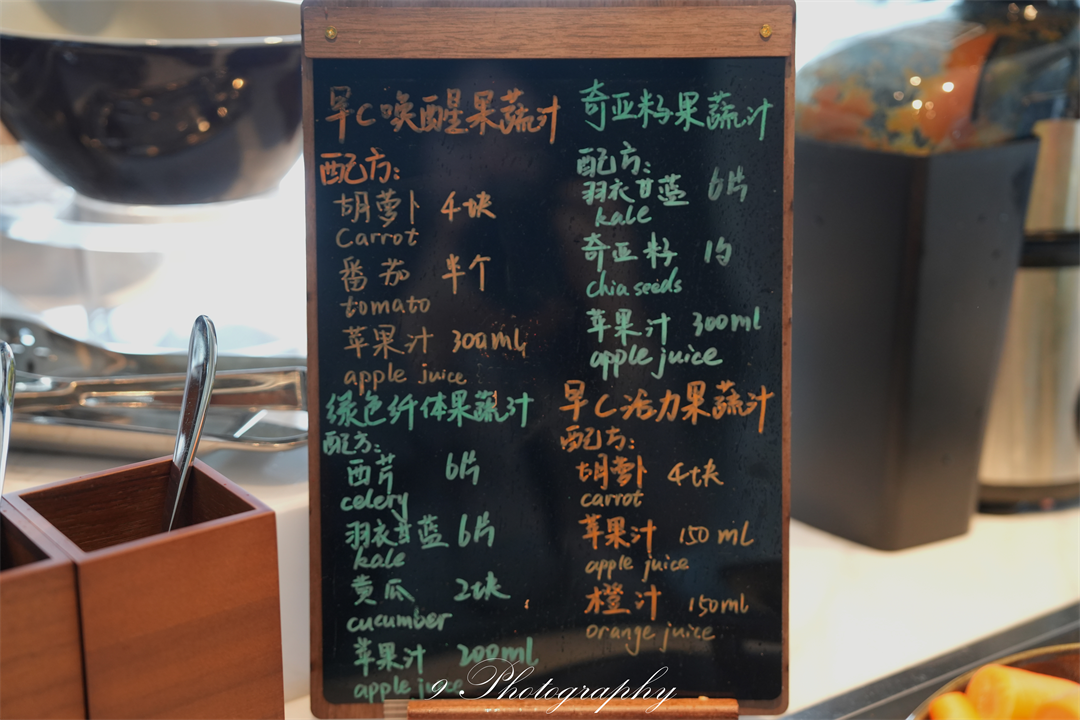 早C唤醒果蔬汁
配方:
胡萝卜 4块
Carrot
番茄 半个
tomato
苹果汁 300ml
apple juice
奇亚籽果蔬汁
配方:
羽衣甘蓝 6片
kale
奇亚籽 1勺
chia seeds
苹果汁 300ml
apple juice
绿色纤体果蔬汁
配方:
西芹 6片
celery
羽衣甘蓝 6片
kale
黄瓜 2块
cucumber
苹果汁 200ml
apple juice
早C活力果蔬汁
配方:
胡萝卜 4块
carrot
苹果汁 150ml
apple juice
橙汁 150ml
orange juice
9 Photography